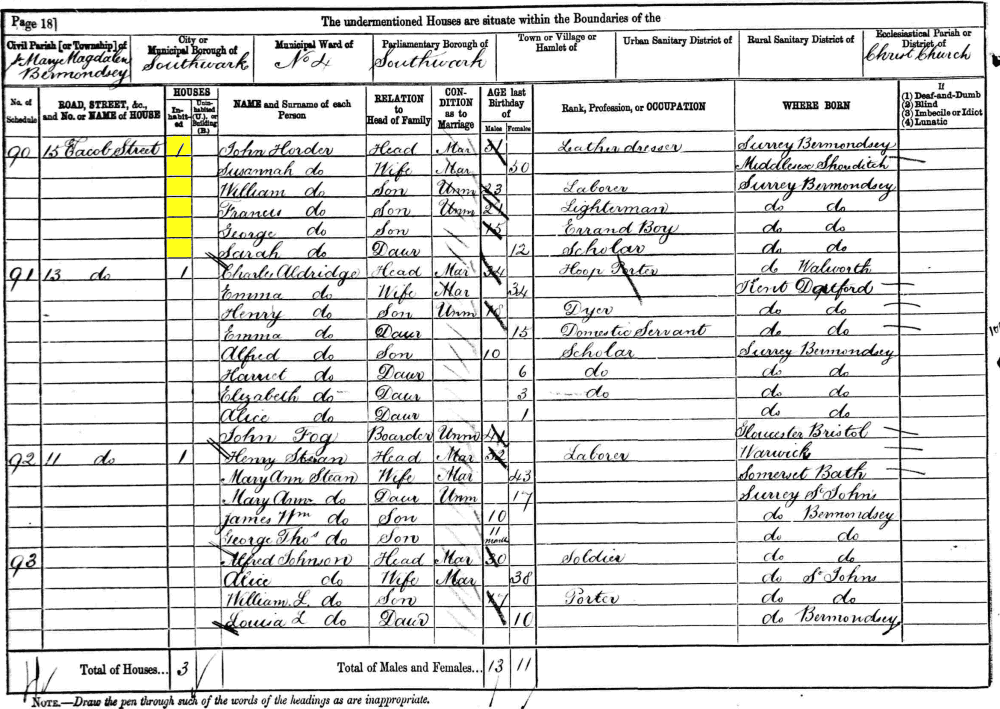 Page 18]
The undermentioned Houses are situate within the Boundaries of the
Civil Parish [or Township] of St Mary Magdalen Bermondsey
City or Municipal Borough of Southwark
Municipal Ward of No 4
Parliamentary Borough of Southwark
Town or Village or Hamlet of
Urban Sanitary District of
Rural Sanitary District of
Ecclesiastical Parish or District of Christ Church
No. of Schedule
ROAD, STREET, &c., and No. or NAME of HOUSE
HOUSES
In-habit-ed
Unin-habited (U.), or Building (B.)
NAME and Surname of each Person
RELATION to Head of Family
CON-DITION as to Marriage
AGE last Birthday of
Males
Females
Rank, Profession, or OCCUPATION
WHERE BORN
If
(1) Deaf-and-Dumb
(2) Blind
(3) Imbecile or Idiot
(4) Lunatic
90 15 Jacob Street 1 John Horder Head Mar 51 Leather dresser Surrey Bermondsey
Susannah do Wife Mar 50 Middlesex Shouditch
William do Son Unm 23 Laborer Surrey Bermondsey
Francis do Son Unm 21 Lighterman do do
George do Son 15 Errand Boy do do
Sarah do Daur 12 Scholar do do
91 13 do 1 Charles Aldridge Head Mar 34 Hoop Porter do Walworth
Emma do Wife Mar 34 Kent Dartford
Henry do Son Unm 18 Dyer do do
Emma do Daur 15 Domestic Servant do do
Alfred do Son 10 Scholar Surrey Bermondsey
Harriet do Daur 6 do do do
Elizabeth do Daur 3 do do do
Alice do Daur 1 do do
John Fog Boarder Unm 44 Gloucester Bristol
92 11 do 1 Henry Stean Head Mar 32 Laborer Warwick
Mary Ann Stean Wife Mar 43 Somerset Bath
Mary Ann do Daur Unm 17 Surrey St Johns
James Wm do Son 10 do Bermondsey
George Thos do Son 11 months do do
93 Alfred Johnson Head Mar 30 Soldier do do
Alice do Wife Mar 38 do St Johns
William L do Son 17 Porter do do
Louisa L do Daur 10 do Bermondsey
Total of Houses... 3
Total of Males and Females... 13 11
NOTE.—Draw the pen through such of the words of the headings as are inappropriate.